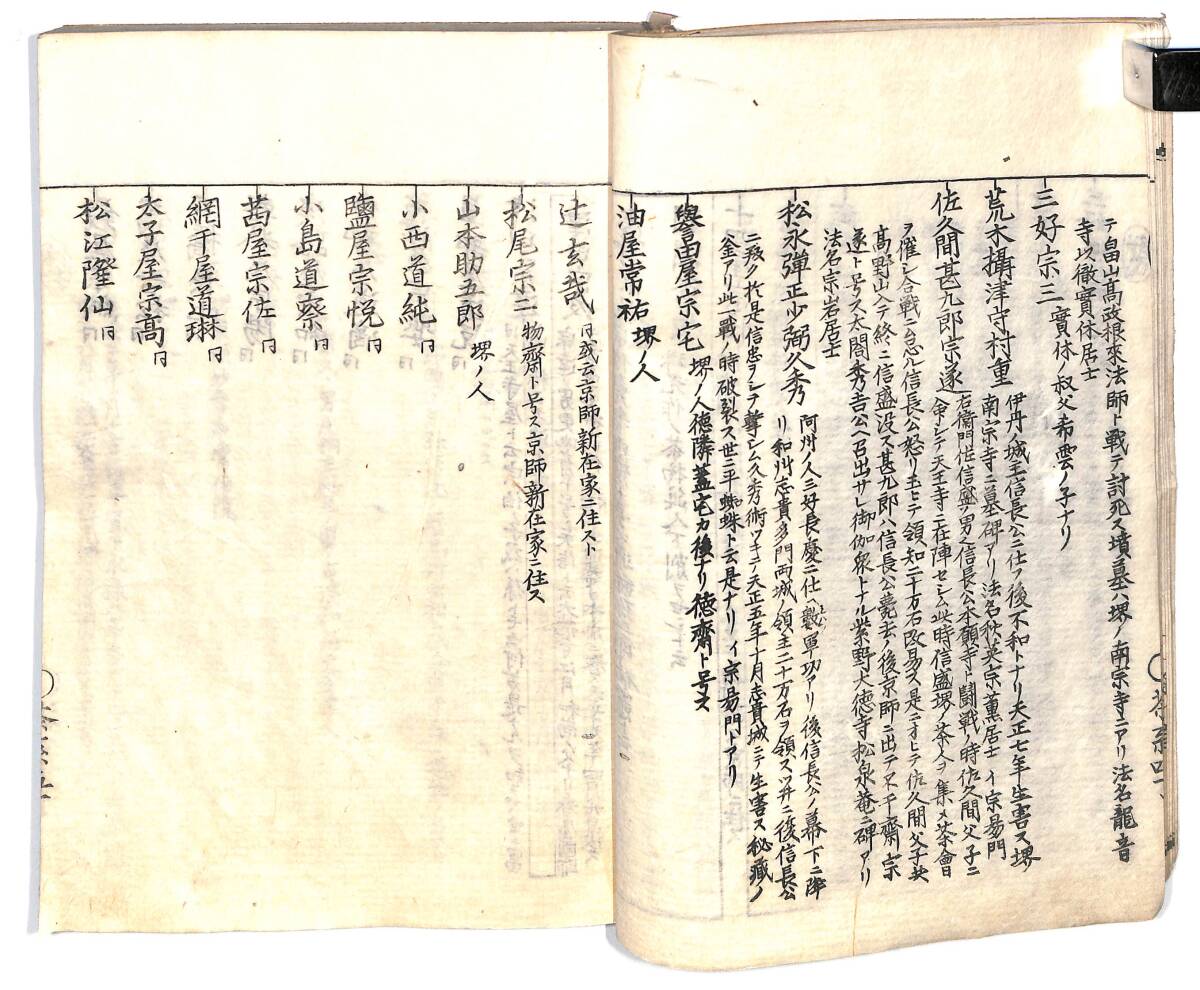 テ畠山高政根來法師ト戰テ討死ス墳墓ハ堺ノ南宗寺ニアリ法名龍音
寺以徹實休居士
三好宗三 實休ノ叔父希雲ノ子ナリ
荒木攝津守村重 伊丹ノ城主信長公ニ仕フ後不和トナリ天正七年生害ス堺
南宗寺ニ墓碑アリ法名秋英宗薫居士 イ宗易門
佐久間甚九郎宗遂 右衛門佐信盛ノ男之信長公本願寺ト鬪戰ノ時佐久間父子ニ
命シテ天王寺ニ在陣セシム此時信盛堺ノ茶人ヲ集メ茶會日
ヲ催シ合戰ニ怠ル信長公怒リ玉ヒテ領知二十万石改易ス是ニオヒテ佐久間父子共
高野山入テ終ニ信盛没ス甚九郎ハ信長公薨去ノ後京師ニ出テ不干齋宗
遂ト号ス太閤秀吉公ヘ召出サレ御伽衆トナル紫野大徳寺松泉菴ニ碑アリ
法名宗岩居士
松永彈正少弼久秀 阿州ノ人三好長慶ニ仕ヘ數軍功アリ後信長公ノ幕下ニ降
リ和州志貴多門両城ノ領主二十万石ヲ領ス後信長公
ニ叛ク於是信忠ヲシテ撃シム久秀術ツキテ天正五年十月志貴城ニテ生害ス秘藏ノ
釜アリ此一戰ノ時破裂ス世ニ平蜘蛛ト云是ナリ イ宗易門トアリ
譽田屋宗宅 堺ノ人徳隣蓋宅カ後ナリ徳齋ト号ス
油屋常祐 堺ノ人
辻玄哉 同或云京師新在家ニ住スト
松尾宗二 物齋ト号ス京師新在家ニ住ス
山本助五郎 堺ノ人
小西道純 同
鹽屋宗悦 同
小島道察 同
茜屋宗佐 同
網干屋道琳 同
太子屋宗高 同
松江隆仙 同